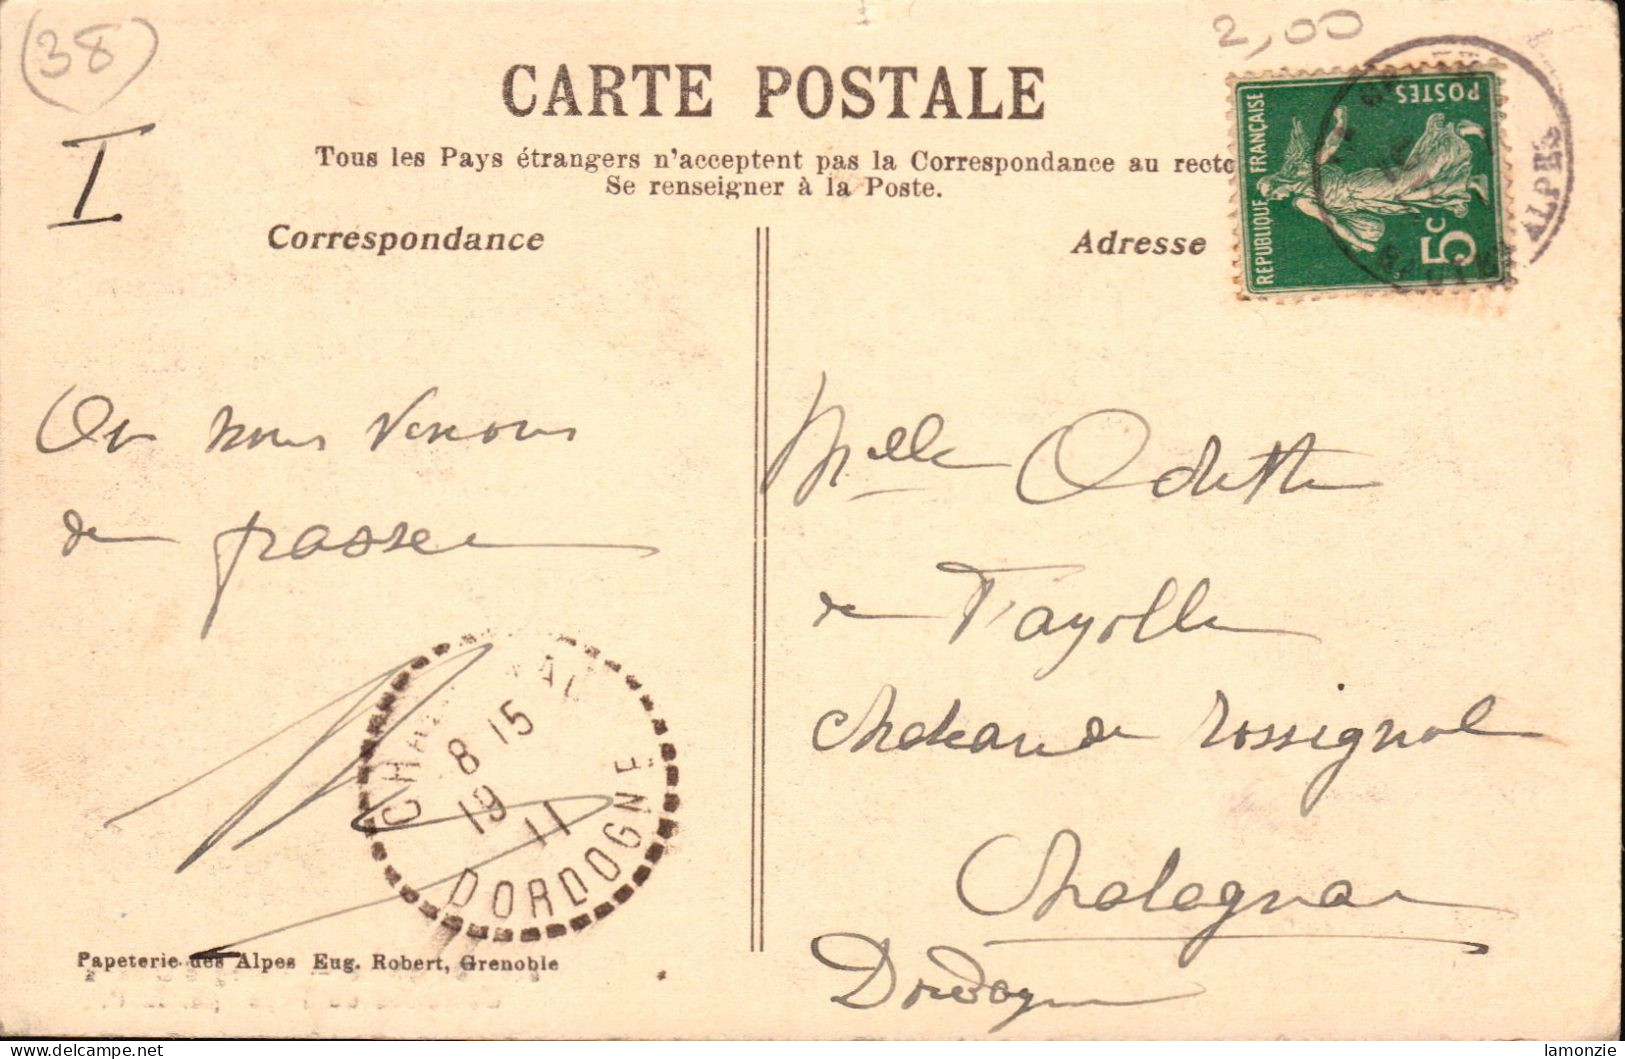 38
2,00
I
CARTE POSTALE
Tous les Pays étrangers n'acceptent pas la Correspondance au recto
Se renseigner à la Poste.
Correspondance
Adresse
REPUBLIQUE FRANÇAISE
POSTES
5c
ALPES
Ou nous venons
de passer
Melle Odette
de Fayolle
Chateau de rossignol
Chalagnac
Dordogne
8 15
19 11
DORDOGNE
Papeterie des Alpes Eug. Robert, Grenoble
lamonzie
Delcampe.net